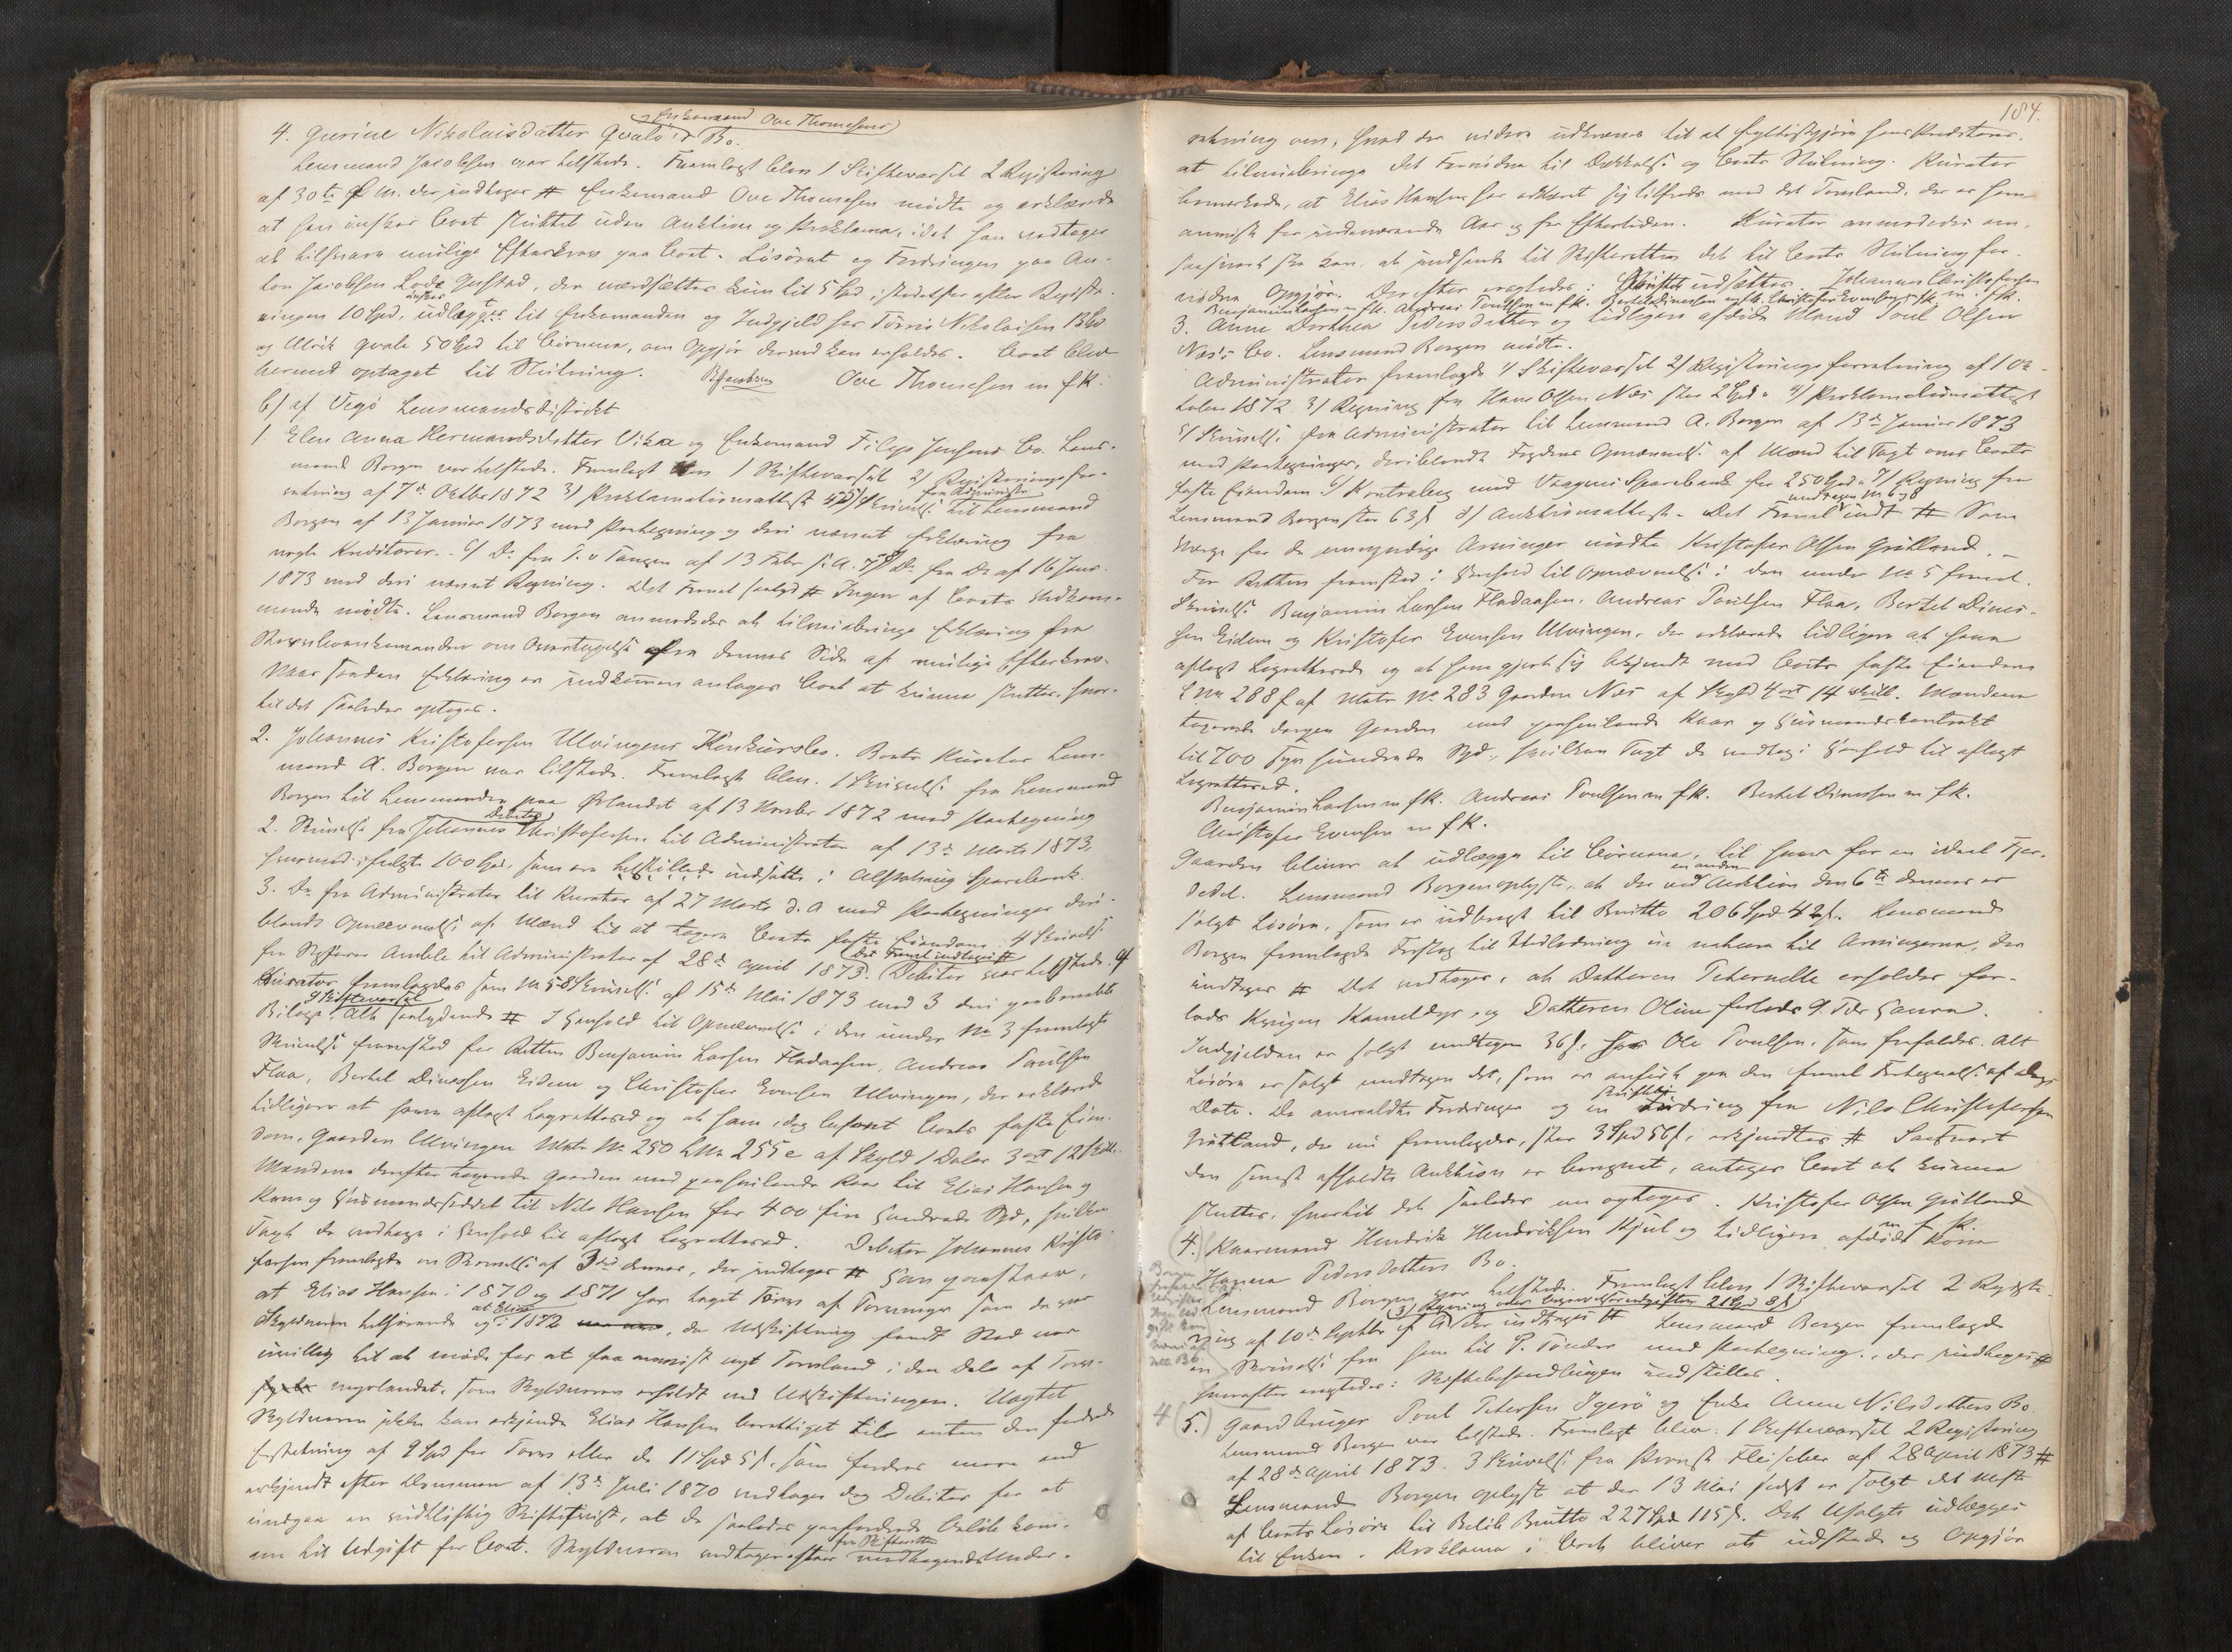 og Enkemand Ove Thomesens
4. Gurine Nikolaisdatter Qvalø's Bo.
Lensmand Jacobsen var tilstede. Fremlagt blev 1 Skiftevarsel 2 Registrering
af 30te f. M. der indtages # Enkemand Ove Thomesen mødte og erklærede
at han ønsker Boet sluttet uden Auktion og Proklama, idet han vedtager
at tilsvare mulige Efterkrav paa Boet. Løsøret og Fordringen paa An-
ton Jacobsen Gulstad, der værdsættes kun til 5 Spd istedetfor efter Registre-
ringen 10 Spd, ønskes udlagt til Enkemanden og Indgjeld hos Tørris Nikolaisen 13
og Ulrik Qvale 50 Spd til Børnene, om Opgjør derved kan erholdes. Boet blev
herved optaget til Slutning. Jacobsen Ove Thomesen m f. P.
b/ af Vegø Lensmandsdistrikt
1. Elen Anna Hermandsdatter Vika og Enkemand Filip Jensens Bo. Lens-
mand Borgen var tilstede. Fremlagt blev 1 Skiftevarsel 2/ Registreringsfor-
retning af 7de Oktbr 1872 3/ Proklamationsattest 4 5/ Skrivelse fra Administr. til Lensmand
Borgen af 13 Januar 1873 med Paategning og deri nævnt Erklæring fra
nogle Kreditorer. 6/ Do fra T. v Tangen af 13 Febr s. A. 7/ Do fra Do af 16 Janr
1873 med deri nævnt Regning. Det Freml saalyd # Ingen af Boets Vedkom-
mende mødte. Lensmand Borgen anmodedes at tilveiebringe Erklæring fra
om Overtagelse fra dennes Side af mulige Efterkrav.
Naar saadan Erklæring er indkommen antages Boet at kunne sluttes, hvor-
til det saaledes optages.
2. Johannes Kristofersen Ulvingens Konkursbo. Boets Kurator Lens-
mand A. Borgen var tilstede. Fremlagt blev. 1 Skrivelse fra Lensmand
Borgen til Lensmanden paa Ørlandet af 13 Novbr 1872 med Paategning
2. Skrivelse fra Debitor Johannes Christofersen til Administrator af 13de Marts 1873,
hvormed fulgte 100 Spd, som ere indsatte i Alstahaug Sparebank.
3. Do fra Administrator til Kurator af 27 Marts d. A med Paategninger deri-
blandt Opnævnelse af Mænd til at taxere Boets faste Eiendom. 4 Skrivelse
fra til Administrator af 28de April 1873. Det Freml indtages # Debitor var tilstede. Af
Kurator fremlagdes som No 5 Skrivelse af 15de Mai 1873 med 3 deri paaberaabte
Bilage, Skiftevarsel Alt saalydende # I Henhold til Opnævnelse i den under No 3 fremlagte
Skrivelse fremstod for Retten Benjamin Larsen Fladaasen, Andreas Poulsen
Flaa, Bertel Dinesen Eidem og Christofer Evensen Ulvingen, der erklærede
tidligere at have aflagt Lagretteed og at have idag befaret Boets faste Eien-
dom, Gaarden Ulvingen Matr No 250 LNo 255 e af Skyld 1 Daler 3 ort 12 Skill.
Mændene derefter taxerede Gaarden med paahvilende Kaar til Elias Hansen og
Kone og Huusmandsseddel til Nils Hansen for 400 fire Hundrede Spd, hvilken
Taxt de vedtage i Henhold til aflagt Lagretteed. Debitor Johannes Kristo-
fersen fremlagde en Skrivelse af 3die dennes, der indtages # Han paastaar,
at Elias Hansen i 1870 og 1871 har taget Torv af Torvmyr som da var
Skyldneren tilhørende og at Elias i 1872, da Udskiftning fandt Sted var
uvillig til at møde for at faa anvist nyt Torvland i den Del af Torv-
myrlandet, som Skyldneren erholdt ved Udskiftningen. Uagtet
Skyldneren ikke kan erkjende Elias Hansen berettiget til enten den fordrede
Erstatning af 9 Spd for Torv eller de 11 Spd 5 s. som fordres mere end
erkjendt efter Dommen af 13de Juli 1870 vedtager dog Debitor for at
undgaa en vidtløftig Skifteretstvist, at de saaledes paafordrede Beløb kom-
me til Udgift for Boet. Skyldneren vedtager efter fra Skifteretten

184.
retning om, hvad der videre udkræves til at fyldestgjøre hans Kreditorer.
at tilveiebringe det Fornødne til Dækkelse og Boets Slutning. Kurator
bemærkede, at Elias Hansen har erklæret sig tilfreds med det Torvland, der er ham
anvist for indeværende Aar og for Eftertiden. Kurator anmodedes om,
saasnart ske kan, at indsende til Skifteretten det til Boets Slutning for-
nødne Opgjør. Derefter eragtedes: Skiftet udsættes. Johannes Christofersen
Benjamin Larsen m f. P. Andreas Poulsen m f. P. Bertel Dinesen m f. P. Christofer Evensen m f. P. m. f. P.
3. Anne Dorthea Pedersdatter og tidligere afdøde Mand Poul Olsen
Næs's Bo. Lensmand Borgen mødte.
Administrator fremlagde 1/ Skiftevarsel 2/ Registreringsforretning af 1 Ok-
tober 1872. 3/ Regning fra Hans Olsen Næs stor 2 Spd. 4/ Proklamationsattest
5/ Skrivelse fra Administrator til Lensmand A. Borgen af 13de Januar 1873
med Paategninger, deriblandt Fogdens Opnævnelse af Mænd til Taxt over Boets
faste Eiendom 6/ Kontrabog med Sparebank for 250 Spd. 7/ Regning fra
Lensmand Borgen stor 63 s 8/ Auktionsattest. Det Freml undtagen No 6 og 8 indt # Som
Værge for de umyndige Arvinger mødte Kristofer Olsen Grøtland.
For Retten fremstod i Henhold til Opnævnelse i den under No 5 freml.
Skrivelse Benjamin Larsen Fladaasen, Andreas Poulsen Flaa, Bertel Dines-
sen Eidem og Kristofer Evensen Ulvingen, der erklærede tidligere at have
aflagt Lagretteed og at have gjort sig bekjendt med Boets faste Eiendom
LNo 288 f af Matr No 283 Gaarden Næs af Skyld 4 ort 14 Skill. Mændene
taxerede dergaa Gaarden med paahvilende Kaar og Huusmandskontrakt
til 700 Syv hundrede Spd, hvilken Taxt de vedtog i Henhold til aflagt
Lagretteed.
Benjamin Larsen m f P. Andreas Poulsen m f P. Bertel Dinesen m f P.
Christofer Evensen m f P.
Gaarden bliver at udlægge til Børnene, til hver for en ideel Fjer-
dedel. Lensmand Borgen oplyste, at der ved en anden Auktion den 6te dennes er
solgt Løsøre, som er udbragt til Brutto 206 Spd 42 s. Lensmand
Borgen fremlagde Forslag til Udlodning in natura til Arvingerne, der
indtages # Det vedtages, at Datteren Peternelle erholder for-
lods og Datteren Oline forlods 9
Indgjelden er solgt undtagen 36 s. hos Ole Poulsen, som frafaldes. Alt
Løsøre er solgt undtagen det, som er anført paa den freml Fortegnelse af dags
Dato. De anmeldte Fordringer og en Fordring fra Nils Christofersen
Grøtland, der nu fremlagdes, stor 3 Spd 56 s, erkjendtes # Saasnart
den senest afholdte Auktion er beregnet, antages Boet at kunne
sluttes, hvortil det saaledes nu optages. Kristofer Olsen Grøtland
m. f. P.
4. Kaarmand Hendrik Hendriksen Hjul og tidligere afdøde Kone
Hanna Pedersdatters Bo.
Lensmand Borgen var tilstede. Fremlagt blev 1 Skiftevarsel 2 Registre-
ring af 10de Septbr f A 3/ Regning over Begravelsesudgifter 21 Spd 8 s der indtages # Lensmand Borgen fremlagde
en Skrivelse fra ham til P. Tønder med Paategning, der indtages #
hvorefter eragtedes: Skiftebehandlingen indstilles.
4 5. Gaardbruger Poul Petersen Igerø og Enke Anne Nilsdatters Bo
Lensmand Borgen var tilstede. Fremlagt blev. 1 Skiftevarsel 2 Registrering
af 28de April 1873. 3 Skrivelse fra Provst Fleischer af 28 April 1873 #
Lensmand Borgen oplyste at der 13 Mai sidst er solgt det meste
af Boets Løsøre til Beløb Brutto 227 Spd 115 s. Det Usolgte udlægges
til Enken. Proklama i Boet bliver at udstede og Opgjør